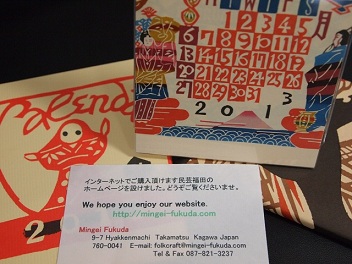 1 2 3 4 5 月
6 7 8 9 10 11 12
13 14 15 16 17 18 19
20 21 22 23 24 25 26
27 28 29 30 31
2013
Calend
2
インターネットでご購入頂けます民芸福田の
ホームページを設けました。どうぞご覧くださいませ。
We hope you enjoy our website.
http://mingei-fukuda.com
Mingei Fukuda
9-7 Hyakkenmachi Takamatsu Kagawa Japan
760-0041 E-mail: folkcraft@mingei-fukuda.com
Tel & Fax 087-821-3237